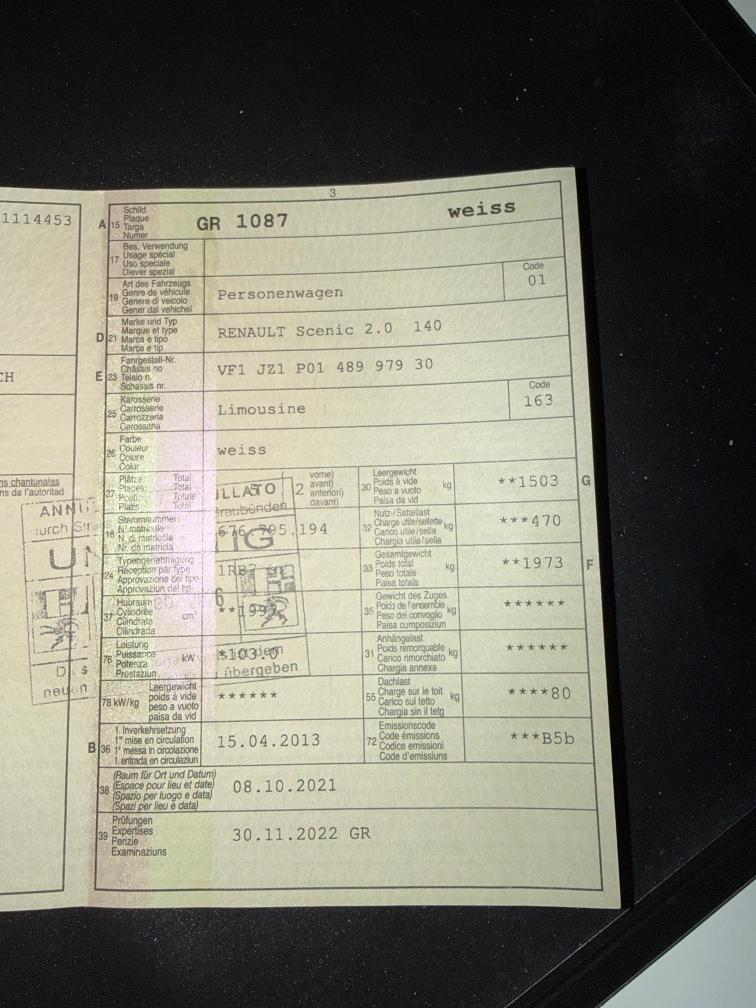 3
1114453
A 15 Schild
Plaque
Targa
Numer
GR 1087 weiss
17 Bes. Verwendung
Usage spécial
Uso speciale
Diever spezial
19 Art des Fahrzeugs
Genre de véhicule
Genere di veicolo
Gener dal vehichel
Personenwagen
Code
01
D 21 Marke und Typ
Marque et type
Marca e tipo
Marca e tip
RENAULT Scenic 2.0 140
CH
E 23 Fahrgestell-Nr.
Châssis no
Telaio n.
Schassis nr.
VF1 JZ1 P01 489 979 30
25 Karosserie
Carrosserie
Carrozzeria
Carossaria
Limousine
Code
163
26 Farbe
Couleur
Colore
Colur
weiss
ns chantunalas
ns da l'autoritad
27 Plätze Total
Places: Total
Posti: Totale
Plazs Total
2 vorne)
avant)
anteriori)
davant)
30 Leergewicht
Poids à vide
Peso a vuoto
Paisa da vid
kg
**1503 G
18 Stammnummer
N° matricule
N. di matricola
Nr. da matricla
676.795.194
32 Nutz-/Sattellast
Charge utile/sellette
Carico utile/sella
Chargia utila/sella
kg
***470
24 Typengenehmigung
Réception par type
Approvazione del tipo
Approvaziun dal tip
33 Gesamtgewicht
Poids total
Peso totale
Paisa totala
kg
**1973 F
37 Hubraum
Cylindrée
Cilindrata
Cilindrada
cm³
35 Gewicht des Zuges
Poids de l'ensemble
Peso del convoglio
Paisa cumposiziun
kg
******
76 Leistung
Puissance
Potenza
Prestaziun
kW
*103.0
31 Anhängelast
Poids remorquable
Carico rimorchiato
Chargia annexa
kg
******
übergeben
78 kW/kg
Leergewicht
poids à vide
peso a vuoto
paisa da vid
******
55 Dachlast
Charge sur le toit
Carico sul tetto
Chargia sin il tetg
kg
****80
B 36 1. Inverkehrsetzung
1re mise en circulation
1a messa in circolazione
1. entrada en circulaziun
15.04.2013
72 Emissionscode
Code émissions
Codice emissioni
Code d'emissiuns
***B5b
38 (Raum für Ort und Datum)
(Espace pour lieu et date)
(Spazio per luogo e data)
(Spazi per lieu e data)
08.10.2021
39 Prüfungen
Expertises
Perizie
Examinaziuns
30.11.2022 GR